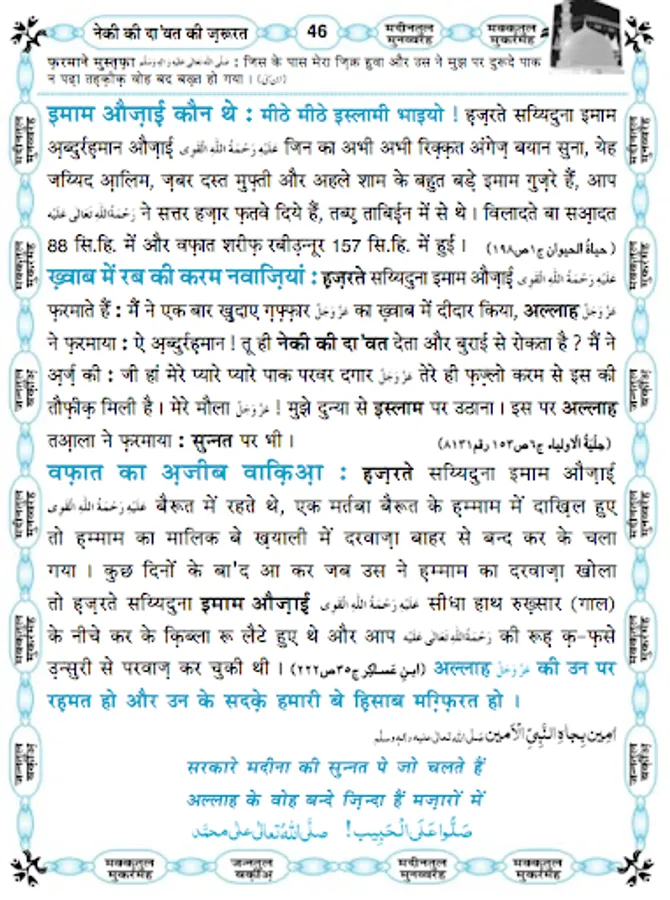 नेकी की दा'वत की ज़रूरत
46
मदीनतुल मुनव्वरह
मक्कतुल मुकर्रमह
फ़रमाने मुस्तफ़ा صلى الله تعالى عليه واله وسلم : जिस के पास मेरा ज़िक्र हुवा और उस ने मुझ पर दुरूदे पाक
न पढ़ा तहक़ीक़ वोह बद बख़्त हो गया ।
इमाम औज़ाई कौन थे : मीठे मीठे इस्लामी भाइयो ! हज़रते सय्यिदुना इमाम
अ़ब्दुर्रहमान औज़ाई عَلَيْهِ رَحْمَةُ اللهِ الْقَوِى जिन का अभी अभी रिक़्क़त अंगेज़ बयान सुना, येह
जय्यिद आलिम, ज़बर दस्त मुफ़्ती और अहले शाम के बहुत बड़े इमाम गुज़रे हैं, आप
رَحْمَةُ اللهِ تَعَالٰى عَلَيْه ने सत्तर हज़ार फ़तवे दिये हैं, तब्ए ताबिईन में से थे । विलादते बा सआ़दत
88 सि.हि. में और वफ़ात शरीफ़ रबीउ़न्नूर 157 सि.हि. में हुई । (حياةُ الحيوان ج١ص١٩٨)
ख़्वाब में रब की करम नवाज़ियां : हज़रते सय्यिदुना इमाम औज़ाई عَلَيْهِ رَحْمَةُ اللهِ الْقَوِى
फ़रमाते हैं : मैं ने एक बार ख़ुदाए ग़फ़्फ़ार عَزَّوَجَلَّ का ख़्वाब में दीदार किया, अल्लाह عَزَّوَجَلَّ
ने फ़रमाया : ऐ अ़ब्दुर्रहमान ! तू ही नेकी की दा'वत देता और बुराई से रोकता है ? मैं ने
अ़र्ज़ की : जी हां मेरे प्यारे प्यारे पाक परवर दगार عَزَّوَجَلَّ तेरे ही फ़ज़्लो करम से इस की
तौफ़ीक़ मिली है । मेरे मौला عَزَّوَجَلَّ ! मुझे दुन्या से इस्लाम पर उठाना । इस पर अल्लाह
तआ़ला ने फ़रमाया : सुन्नत पर भी । (حِلْيَةُ الاولياء ج٦ص١٥٣رقم٨١٣١)
वफ़ात का अ़जीब वाक़िआ़ : हज़रते सय्यिदुना इमाम औज़ाई
عَلَيْهِ رَحْمَةُ اللهِ الْقَوِى बैरूत में रहते थे, एक मर्तबा बैरूत के हम्माम में दाख़िल हुए
तो हम्माम का मालिक बे ख़याली में दरवाज़ा बाहर से बन्द कर के चला
गया । कुछ दिनों के बा'द आ कर जब उस ने हम्माम का दरवाज़ा खोला
तो हज़रते सय्यिदुना इमाम औज़ाई عَلَيْهِ رَحْمَةُ اللهِ الْقَوِى सीधा हाथ रुख़्सार (गाल)
के नीचे कर के क़िब्ला रू लेटे हुए थे और आप رَحْمَةُ اللهِ تَعَالٰى عَلَيْه की रूह़ क़-फ़से
उ़न्सुरी से परवाज़ कर चुकी थी । (ابنِ عَسَاكِر ج٣٥ص٢٢٢) अल्लाह عَزَّوَجَلَّ की उन पर
रहमत हो और उन के सदक़े हमारी बे हिसाब मग़्फ़िरत हो ।
امِين بِجاهِ النَّبِىِّ الْاَمين صلَّى الله تعالى عليه واله وسلَّم
सरकारे मदीना की सुन्नत पे जो चलते हैं
अल्लाह के वोह बन्दे ज़िन्दा हैं मज़ारों में
صَلُّوا عَلَى الْحَبِيب! صلَّى اللهُ تعالى على محمَّد
मक्कतुल मुकर्रमह
जन्नतुल बक़ीअ़
मदीनतुल मुनव्वरह
मक्कतुल मुकर्रमह